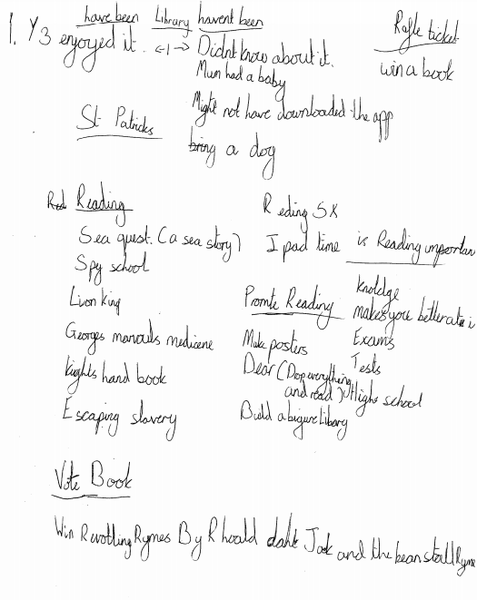 have been Library havent been
1. Y3 enjoyed it. ←1→ Didnt know about it.
Mum had a baby
Might not have downloaded the app
bring a dog
Rafle ticket
win a book
St Patricks
Red Reading
Sea quest. (a sea story)
Spy school
Lion king
Georges medicene
hand book
Escaping slavery
Reding 5x
I pad time
Promte Reading
Make posters
Dear (Drop everything
and read)
Build a bigure Libary
is Reading importan
knoldge
makes you better at i
Exams
Tests
High school
Vote Book
Win Revotling Rymes By Rhoald dahl Jack and the beanstall Ryme